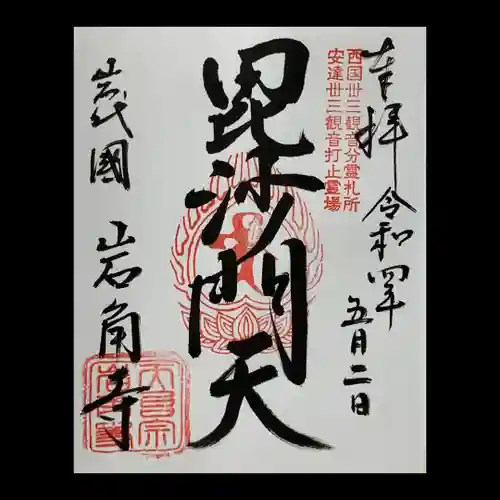 奉拝 令和四年
五月二日
西国卅三観音分霊札所
安達卅三観音打止霊場
毘沙門天
岩角寺